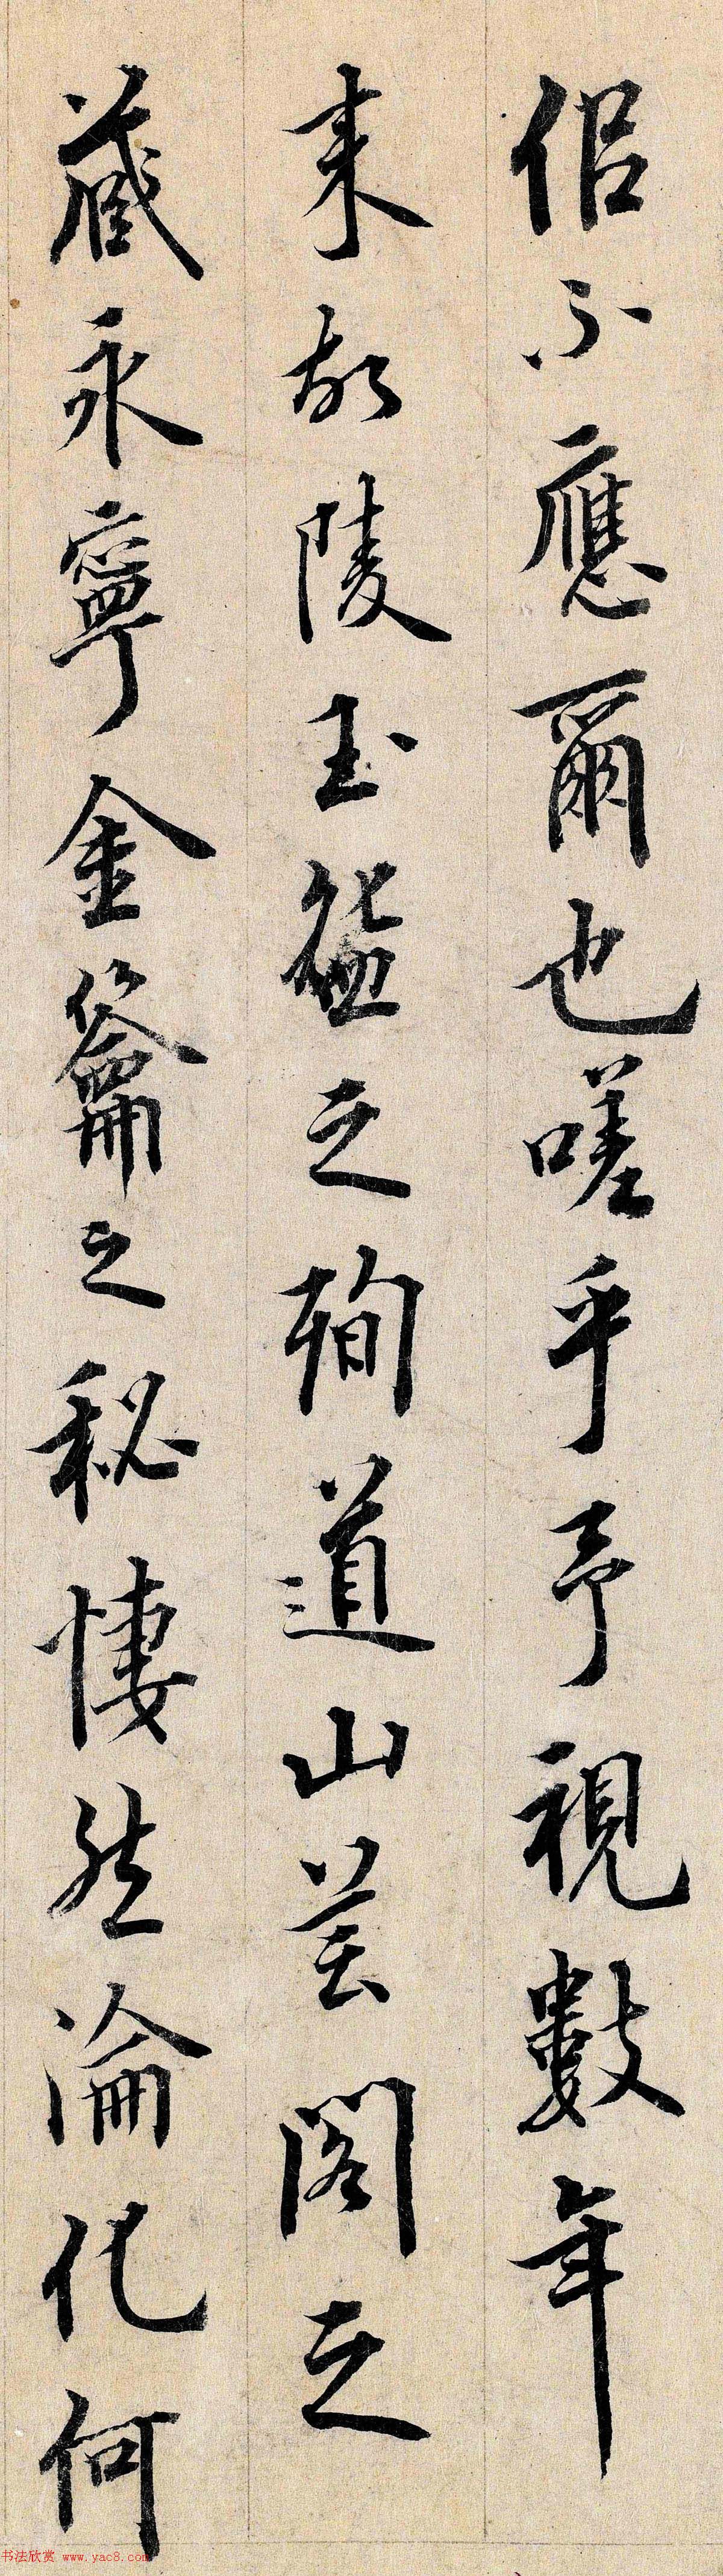 侣不應爾也嗟乎予視數年
来故陵玉之殉道山芸閣之
藏永寧金籥之秘悽然淪化何
书法欣赏 www.yac8.com